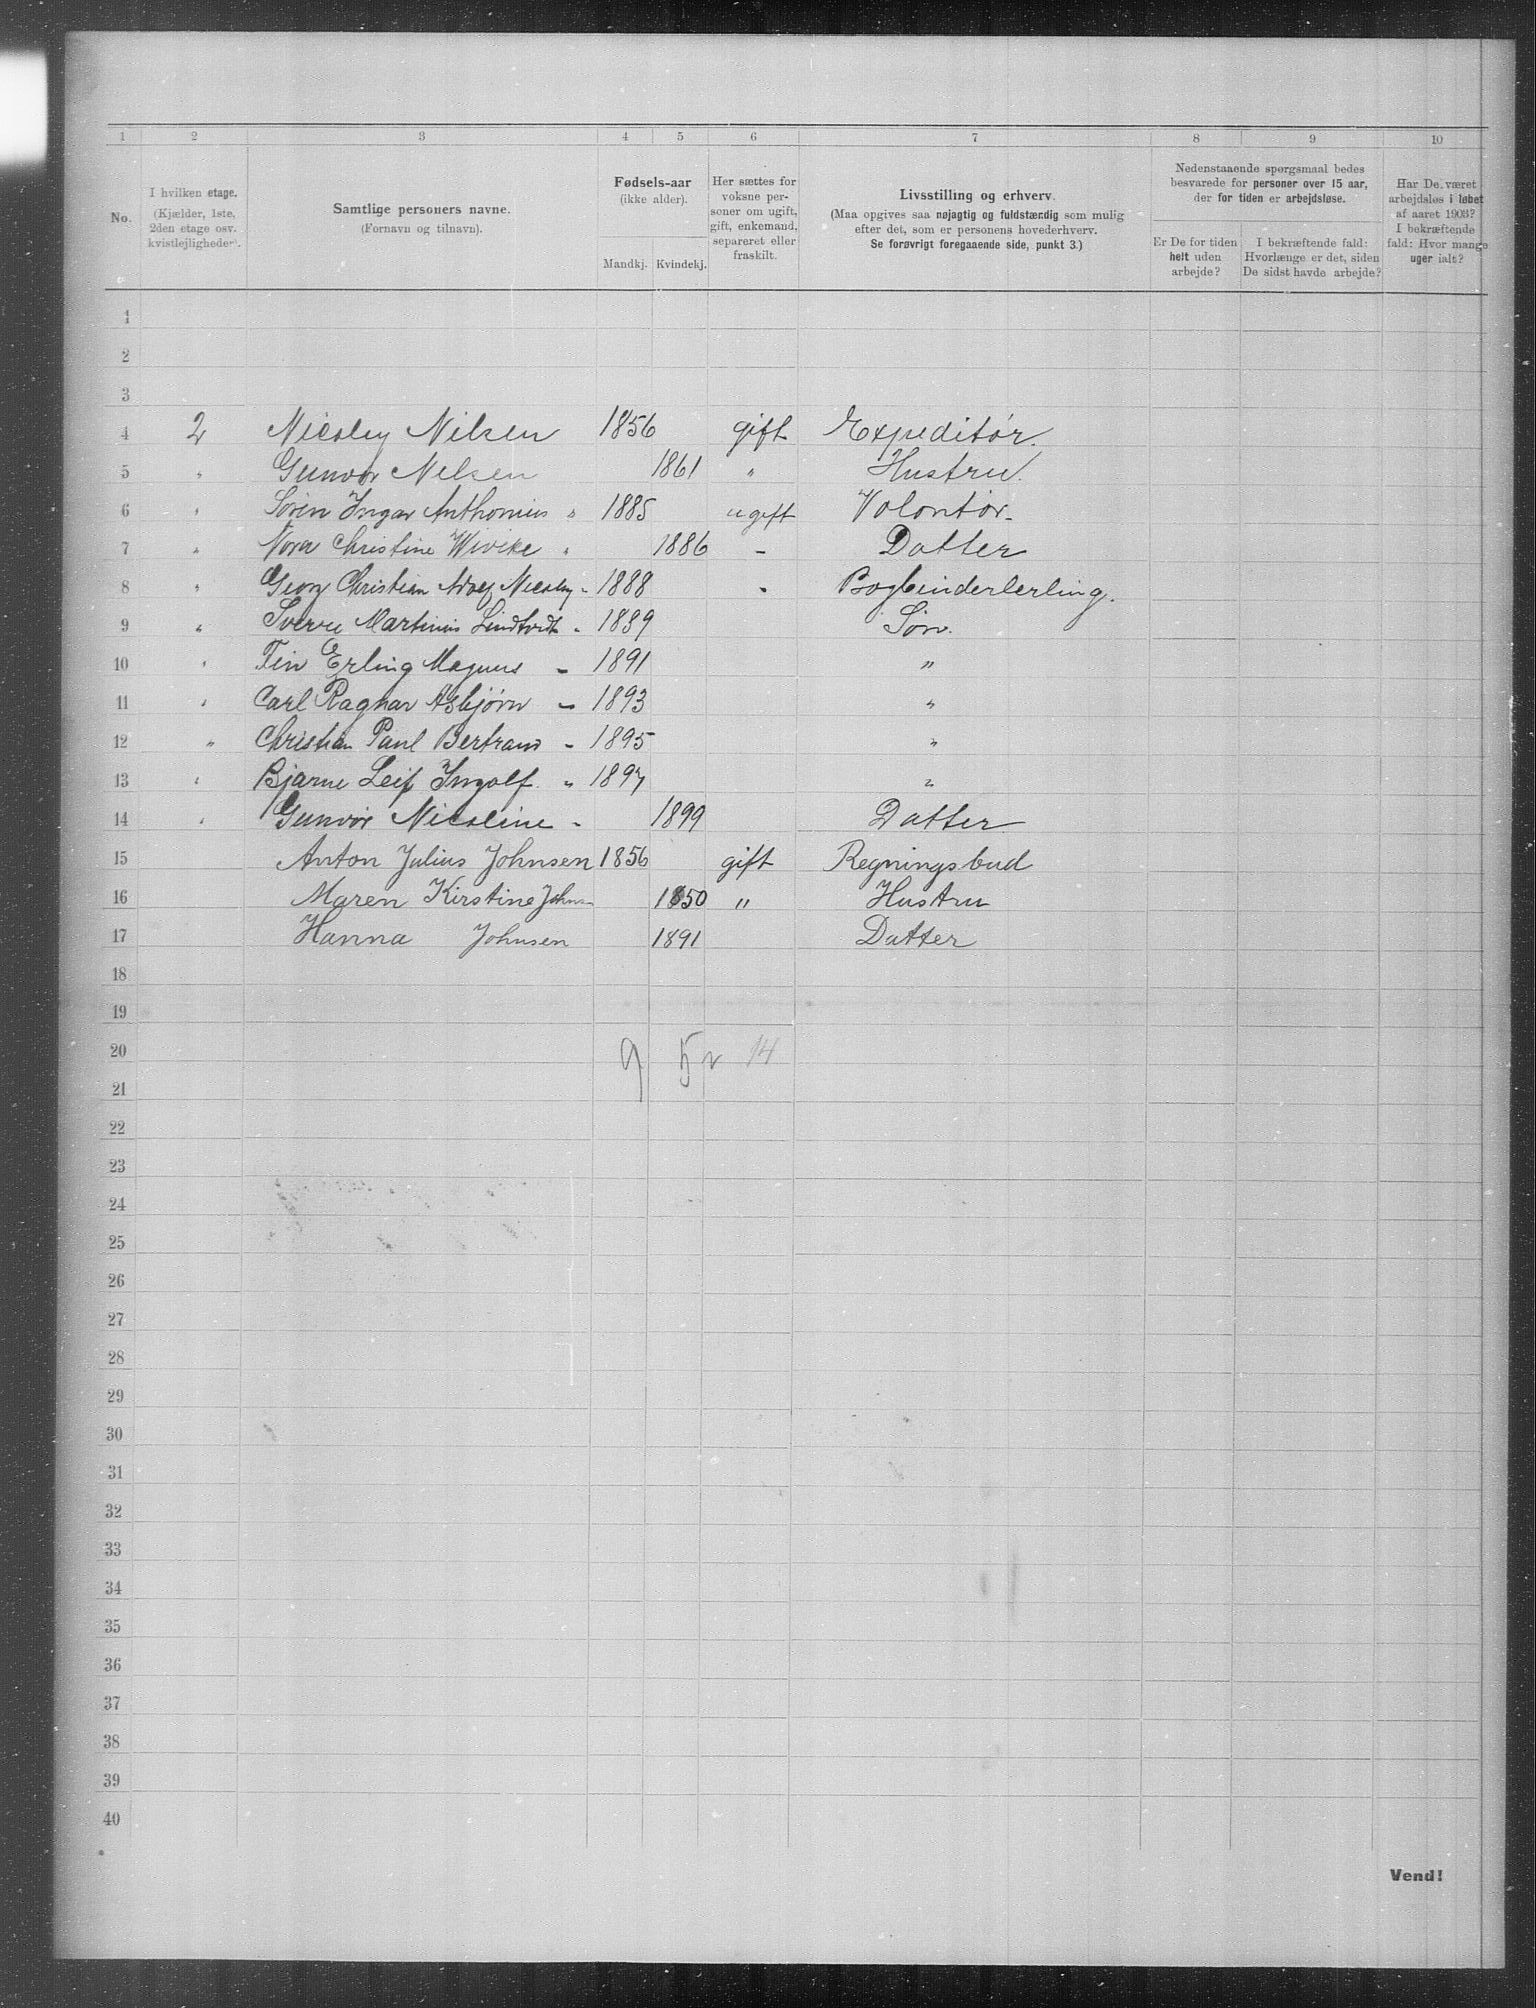 1 2 3 4 5 6 7 8 9 10
No.
I hvilken etage.
(Kjælder, 1ste,
2den etage osv.
kvistlejligheder).
Samtlige personers navne.
(Fornavn og tilnavn).
Fødsels-aar
(ikke alder).
Mandkj. Kvindekj.
Her sættes for
voksne per-
soner om ugift,
gift, enkemand,
separeret eller
fraskilt.
Livsstilling og erhverv.
(Maa opgives saa nøjagtig og fuldstændig som mulig
efter det, som er personens hovederhverv.
Se forøvrigt foregaaende side, punkt 3.)
Nedenstaaende spørgsmaal bedes
besvarede for personer over 15 aar,
der for tiden er arbejdsløse.
Er De for tiden
helt uden
arbejde?
I bekræftende fald:
Hvorlænge er det, siden
De sidst havde arbejde?
Har De været
arbejdsløs i løbet
af aaret 1903?
I bekræftende
fald: Hvor mange
uger ialt?
1
2
3
4 2 Nicolay Nilsen 1856 gift Expeditør.
5 " Gunvor Nilsen 1861 " Hustru.
6 " Søren Ingar Anthonius " 1885 ugift Volontør.
7 " Nora Christine Wivike " 1886 - Datter
8 " Georg Christian Adolf Nicolay - 1888 " Bogbinderlerling.
9 " Sverre Martinius - 1889 Søn.
10 " Fin Erling Magnus - 1891 "
11 " Carl Ragnar Asbjørn - 1893 "
12 " Christian Paul Bertrand - 1895 "
13 " Bjarne Leif Ingolf. " 1897 "
14 " Gunvor Nicoline - 1899 Datter
15 Anton Julius Johnsen 1856 gift Regningsbud
16 Maren Kirstine Johns 1850 " Hustru
17 Hanna Johnsen 1891 Datter
18
19
20 9 5 14
21
22
23
24
25
26
27
28
29
30
31
32
33
34
35
36
37
38
39
40
Vend!